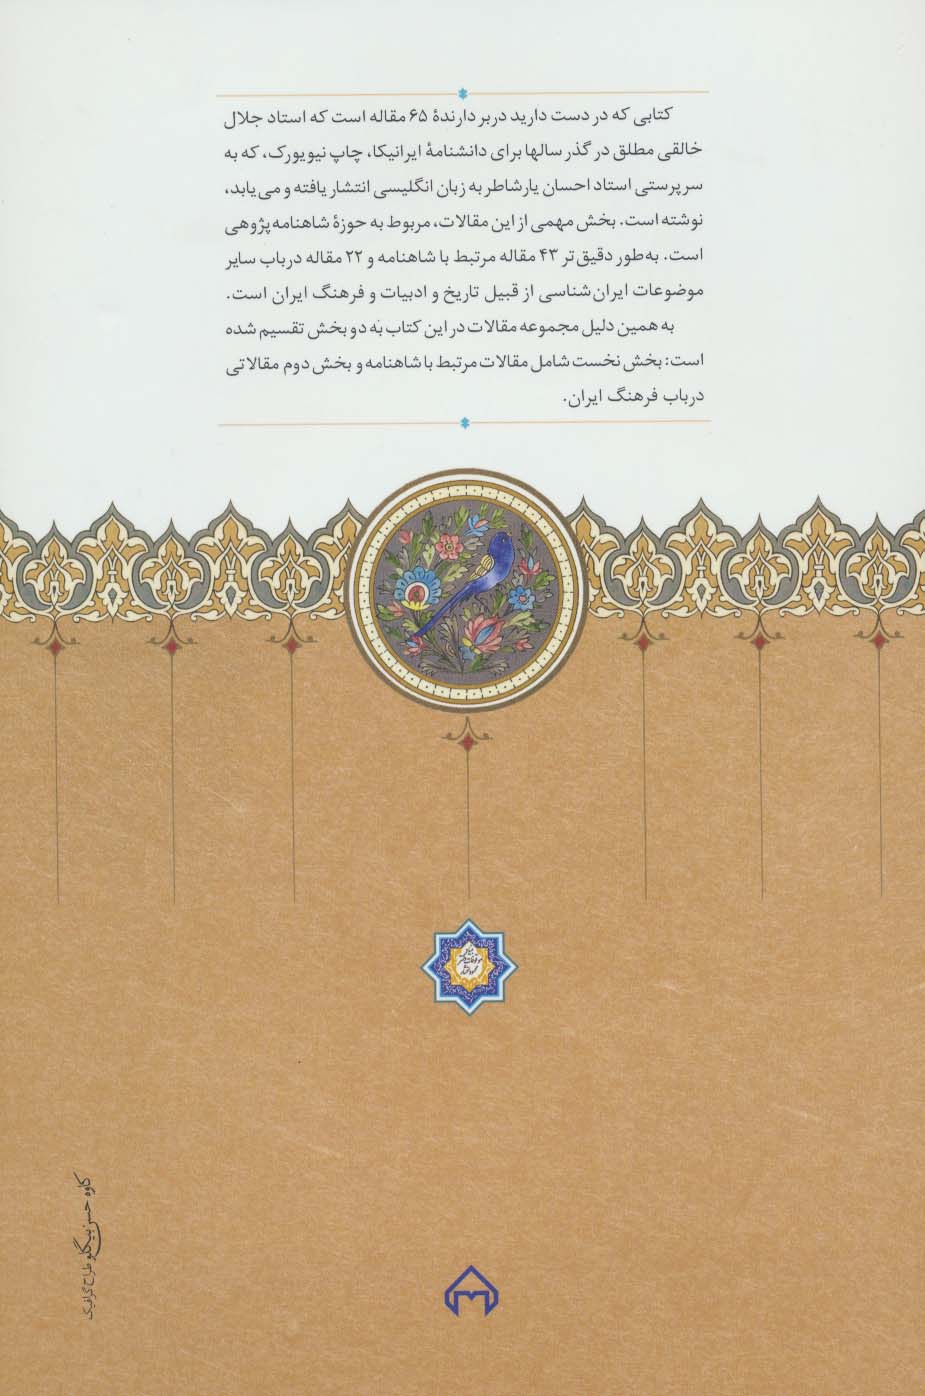 کتابی که در دست دارید دربر دارندهٔ ۶۵ مقاله است که استاد جلال
خالقی مطلق در گذر سالها برای دانشنامهٔ ایرانیکا، چاپ نیویورک، که به
سرپرستی استاد احسان یارشاطر به زبان انگلیسی انتشار یافته و می‌یابد،
نوشته است. بخش مهمی از این مقالات، مربوط به حوزهٔ شاهنامه‌پژوهی
است. به‌طور دقیق‌تر ۴۳ مقاله مرتبط با شاهنامه و ۲۲ مقاله درباب سایر
موضوعات ایران‌شناسی از قبیل تاریخ و ادبیات و فرهنگ ایران است.
به همین دلیل مجموعه مقالات در این کتاب به دو بخش تقسیم شده
است: بخش نخست شامل مقالات مرتبط با شاهنامه و بخش دوم مقالاتی
درباب فرهنگ ایران.
بنیاد
موقوفات دکتر
محمود افشار
کاوه حسن بیگلو طراح گرافیک